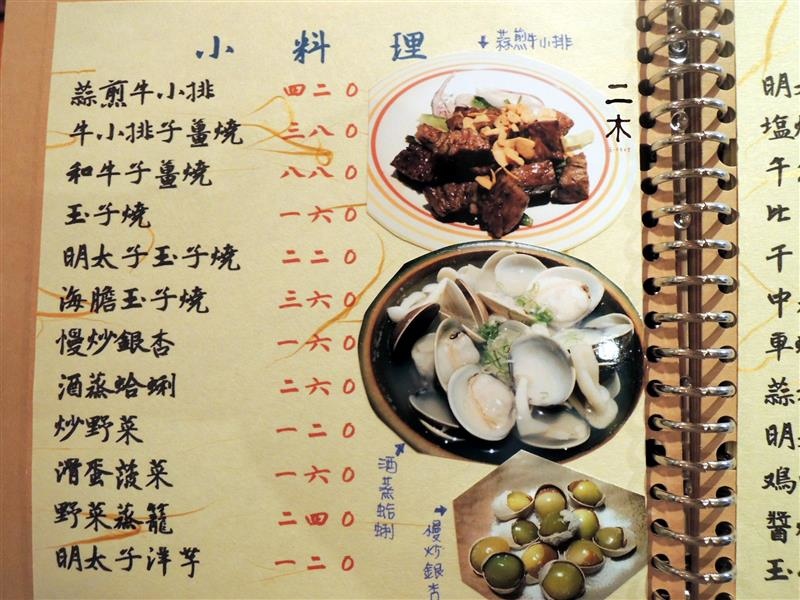 小料理
蒜煎牛小排 四二0
牛小排子薑燒 三八0
和牛子薑燒 八八0
玉子燒 一六0
明太子玉子燒 二二0
海膽玉子燒 三六0
慢炒銀杏 一六0
酒蒸蛤蜊 二六0
炒野菜 一二0
滑蛋菠菜 一六0
野菜蒸籠 二四0
明太子洋芋 一二0
蒜煎牛小排
二木
酒蒸蛤蜊
慢炒銀杏
明太
塩
牛
比
干
中
車
蒜
明
鷄
醬
玉